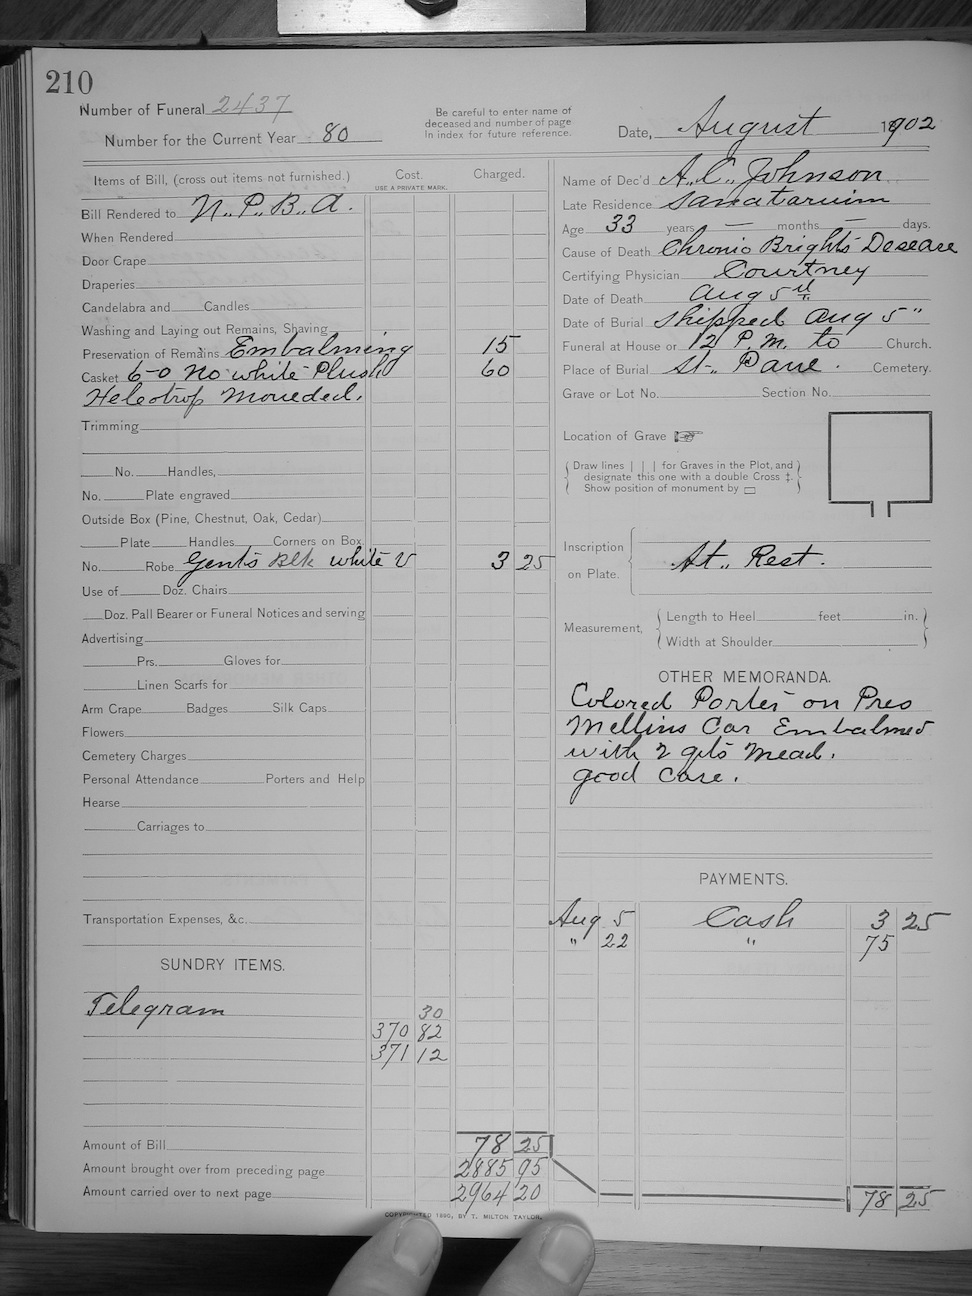 210
Number of Funeral 2437
Number for the Current Year 80
Be careful to enter name of
deceased and number of page
in index for future reference.
Date, August 1902
Items of Bill, (cross out items not furnished.)
Cost.
USE A PRIVATE MARK.
Charged.
Bill Rendered to N.P.B.A.
When Rendered
Door Crape
Draperies
Candelabra and Candles
Washing and Laying out Remains, Shaving
Preservation of Remains Embalming 15
Casket 6-0 No white Plush 60
Heleotrop Moueded.
Trimming
No. Handles,
No. Plate engraved
Outside Box (Pine, Chestnut, Oak, Cedar)
Plate Handles Corners on Box
No. Robe Gents Blk white V 3 25
Use of Doz. Chairs
Doz. Pall Bearer or Funeral Notices and serving
Advertising
Prs. Gloves for
Linen Scarfs for
Arm Crape Badges Silk Caps
Flowers
Cemetery Charges
Personal Attendance Porters and Help
Hearse
Carriages to
Transportation Expenses, &c.
SUNDRY ITEMS.
Telegram 30
370 82
371 12
Amount of Bill 78 25
Amount brought over from preceding page 2885 95
Amount carried over to next page 2964 20
COPYRIGHTED 1890, BY T. MILTON TAYLOR.
Name of Dec'd A.C. Johnson
Late Residence Sanatarium
Age 33 years — months — days.
Cause of Death Chronic Brights Desease
Certifying Physician Courtney
Date of Death Aug 5th
Date of Burial Shipped Aug 5"
Funeral at House or 12 P.M. to Church.
Place of Burial St. Paul. Cemetery.
Grave or Lot No. Section No.
Location of Grave
Draw lines | | | for Graves in the Plot, and
designate this one with a double Cross ‡.
Show position of monument by
Inscription
on Plate.
At. Rest.
Measurement,
Length to Heel feet in.
Width at Shoulder
OTHER MEMORANDA.
Colored Porter on Pres
Mellins Car Embalmed
with 2 gts Mead.
good case.
PAYMENTS.
Aug 5 Cash 3 25
" 22 " 75
78 25